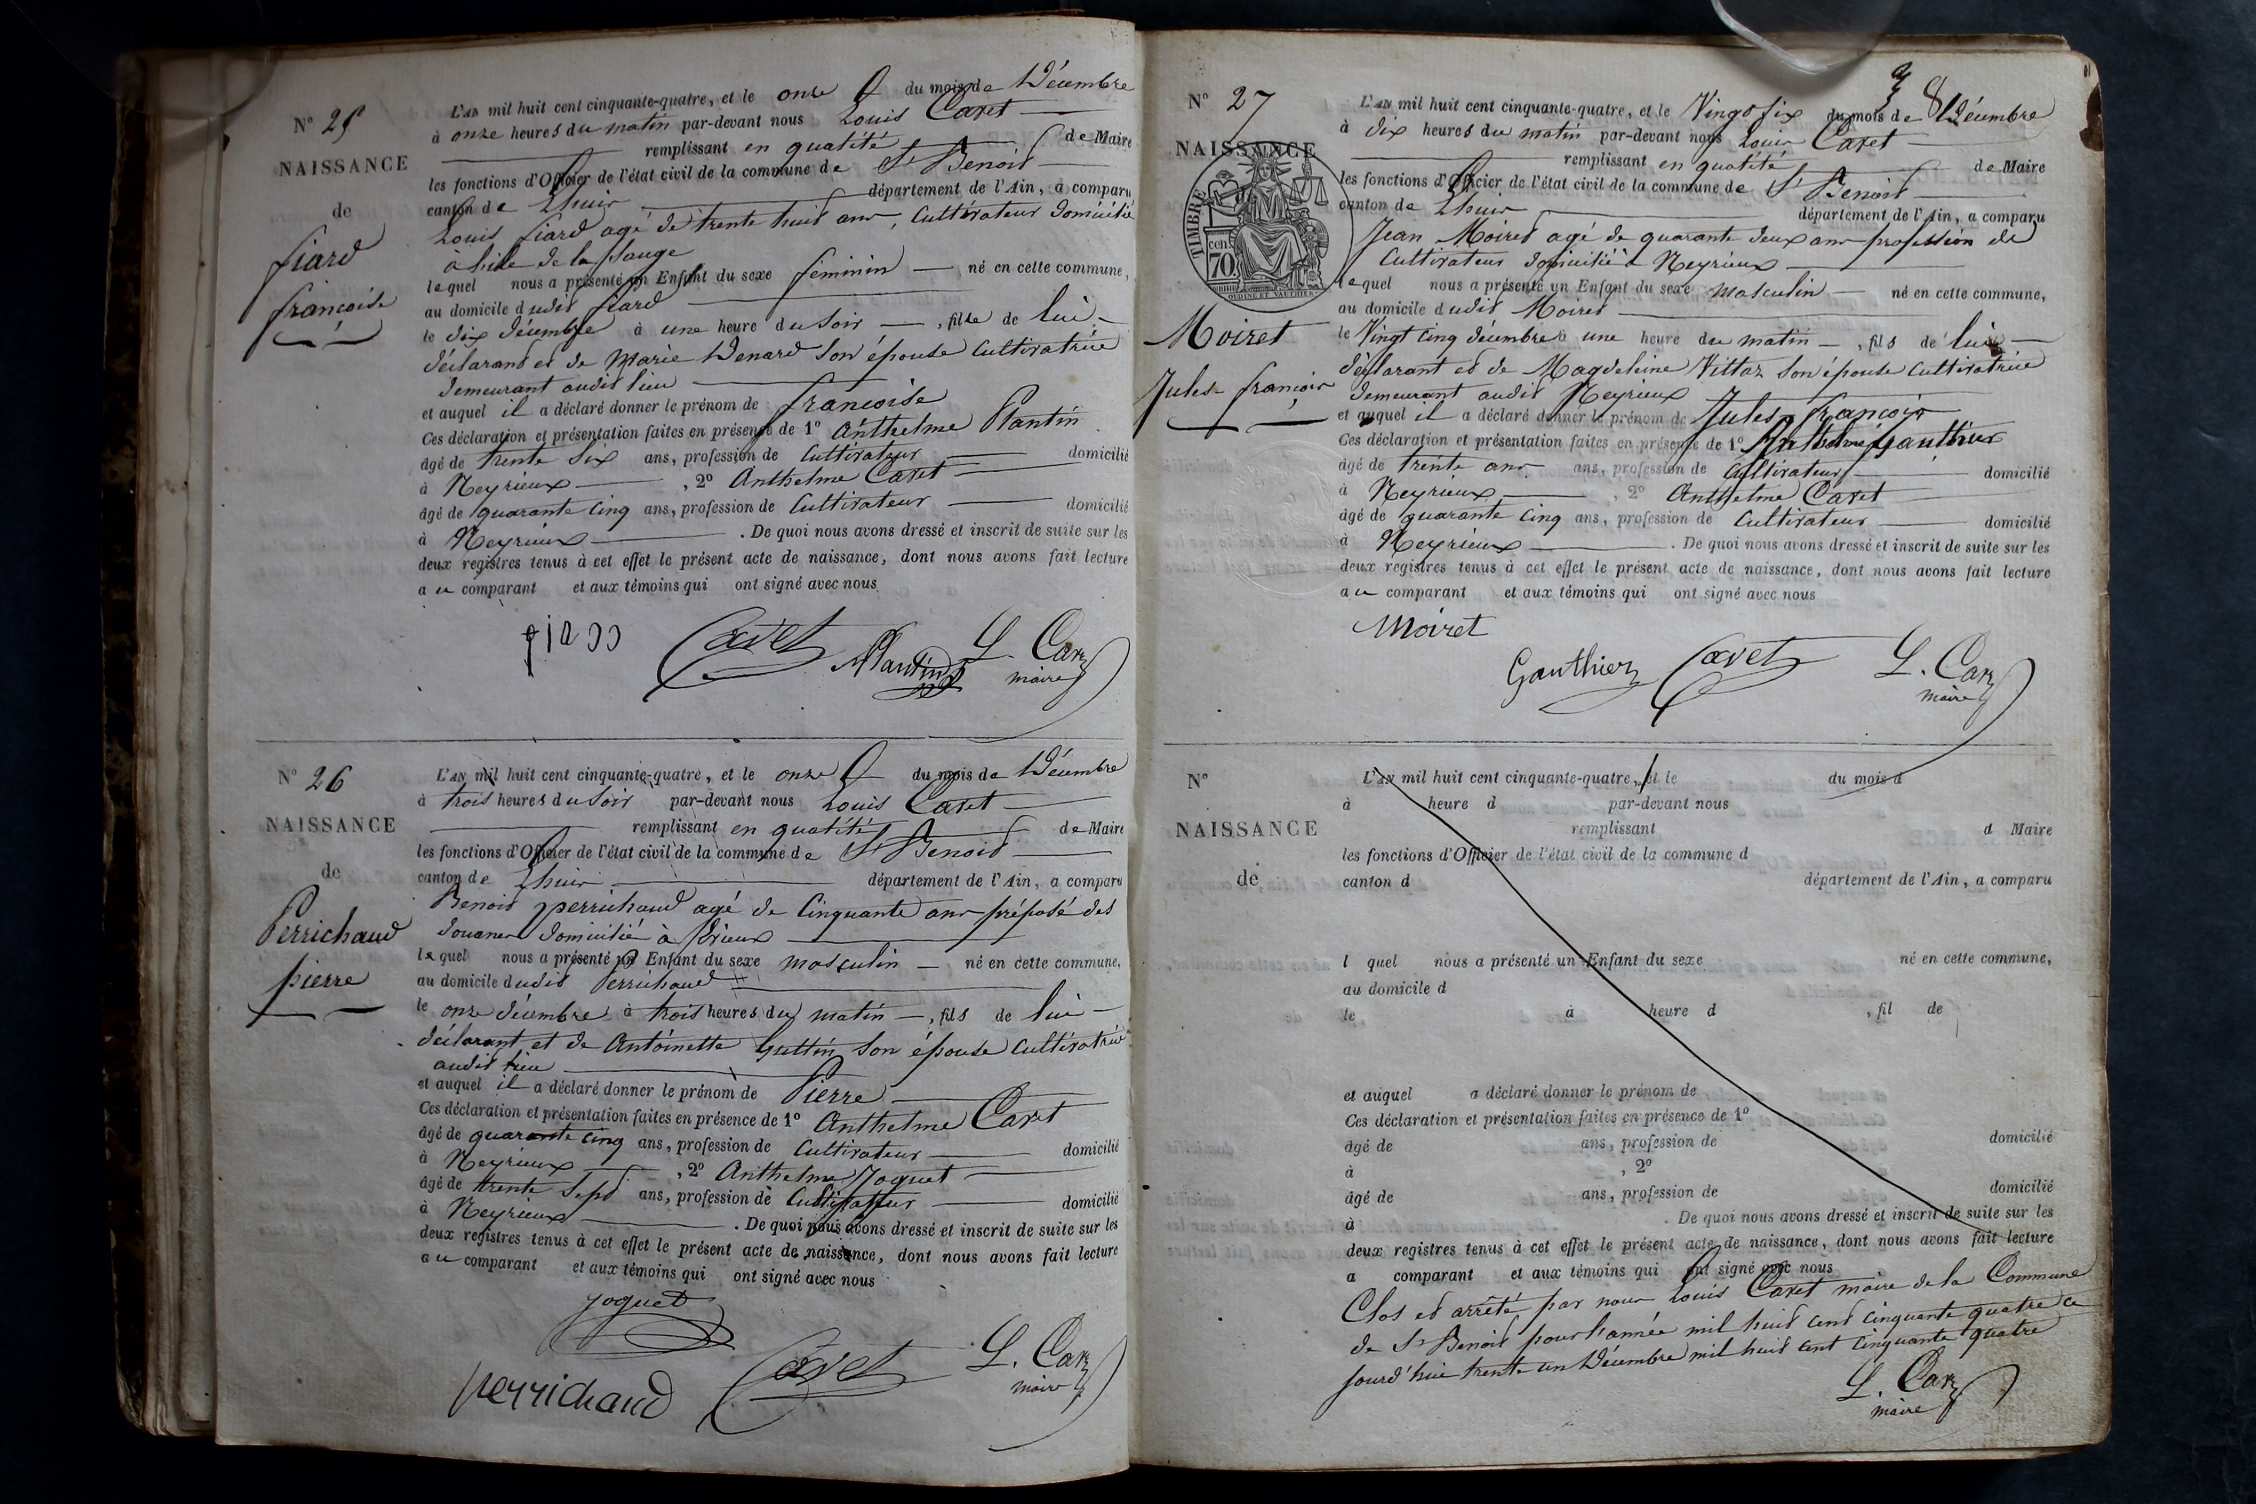 N° 25
NAISSANCE
de
fiard
françoise
L'AN mil huit cent cinquante-quatre, et le onze du mois de Décembre
à onze heures du matin par-devant nous Louis Caret
remplissant en qualité de Maire
les fonctions d'Officier de l'état civil de la commune de St Benoit
canton de Lhuis département de l'Ain, a comparu
Louis fiard agé de trente huit ans, Cultivateur domicilié
à de la
lequel nous a présenté un Enfant du sexe feminin né en cette commune,
au domicile dudit fiard
le dix décembre à une heure du soir, fille de lui
déclarant et de Marie Denard son épouse Cultivatrice
demeurant audit lieu
et auquel il a déclaré donner le prénom de françoise
Ces déclaration et présentation faites en présence de 1° Anthelme Plantin
âgé de trente six ans, profession de Cultivateur domicilié
à Neyrieux, 2° Anthelme Caret
âgé de quarante cinq ans, profession de Cultivateur domicilié
à Neyrieux. De quoi nous avons dressé et inscrit de suite sur les
deux registres tenus à cet effet le présent acte de naissance, dont nous avons fait lecture
au comparant et aux témoins qui ont signé avec nous
Plantin L. Car
maire
N° 26
NAISSANCE
de
Perrichaud
pierre
L'AN mil huit cent cinquante-quatre, et le onze du mois de Décembre
à trois heures du soir par-devant nous Louis Caret
remplissant en qualité de Maire
les fonctions d'Officier de l'état civil de la commune de St Benoit
canton de Lhuis département de l'Ain, a comparu
Benoit perrichaud agé de Cinquante ans préposé des
douanes domicilié à
lequel nous a présenté un Enfant du sexe masculin né en cette commune,
au domicile dudit Perrichaud
le onze décembre à trois heures du matin, fils de lui
déclarant et de Antoinette Guttin son épouse Cultivatrice
audit lieu
et auquel il a déclaré donner le prénom de Pierre
Ces déclaration et présentation faites en présence de 1° Anthelme Caret
âgé de quarante cinq ans, profession de Cultivateur domicilié
à Neyrieux, 2° Anthelme Joguet
âgé de trente Sept ans, profession de Cultivateur domicilié
à Neyrieux. De quoi nous avons dressé et inscrit de suite sur les
deux registres tenus à cet effet le présent acte de naissance, dont nous avons fait lecture
au comparant et aux témoins qui ont signé avec nous
joguet
perrichaud L. Car
maire
8
N° 27
NAISSANCE
TIMBRE
cen.
70
Moiret
Jules françois
L'AN mil huit cent cinquante-quatre, et le Vingt six du mois de Décembre
à dix heures du matin par-devant nous Louis Caret
remplissant en qualité de Maire
les fonctions d'Officier de l'état civil de la commune de St Benoit
canton de Lhuis département de l'Ain, a comparu
Jean Moiret agé de quarante deux ans profession de
Cultivateur domicilié à Neyrieux
lequel nous a présenté un Enfant du sexe masculin né en cette commune,
au domicile dudit Moiret
le Vingt cinq décembre à une heure du matin, fils de lui
déclarant et de Magdeleine Vittoz son épouse Cultivatrice
demeurant audit Neyrieux
et auquel il a déclaré donner le prénom de Jules françois
Ces déclaration et présentation faites en présence de 1° Anthelme Gauthier
âgé de trente ans ans, profession de Cultivateur domicilié
à Neyrieux, 2° Anthelme Caret
âgé de quarante cinq ans, profession de Cultivateur domicilié
à Neyrieux. De quoi nous avons dressé et inscrit de suite sur les
deux registres tenus à cet effet le présent acte de naissance, dont nous avons fait lecture
au comparant et aux témoins qui ont signé avec nous
Moiret
Gauthier L. Car
maire
N°
NAISSANCE
de
L'AN mil huit cent cinquante-quatre, et le du mois d
à heure d par-devant nous
remplissant d Maire
les fonctions d'Officier de l'état civil de la commune d
canton d département de l'Ain, a comparu
l quel nous a présenté un Enfant du sexe né en cette commune,
au domicile d
le à heure d, fil de
et auquel a déclaré donner le prénom de
Ces déclaration et présentation faites en présence de 1°
âgé de ans, profession de domicilié
à, 2°
âgé de ans, profession de domicilié
à. De quoi nous avons dressé et inscrit de suite sur les
deux registres tenus à cet effet le présent acte de naissance, dont nous avons fait lecture
a comparant et aux témoins qui ont signé avec nous
Clos et arrêté par nous Louis Caret maire de la Commune
de St Benoit pour l'année mil huit cent cinquante quatre ce
jourd'hui trente un Décembre mil huit cent cinquante quatre
L. Car
maire